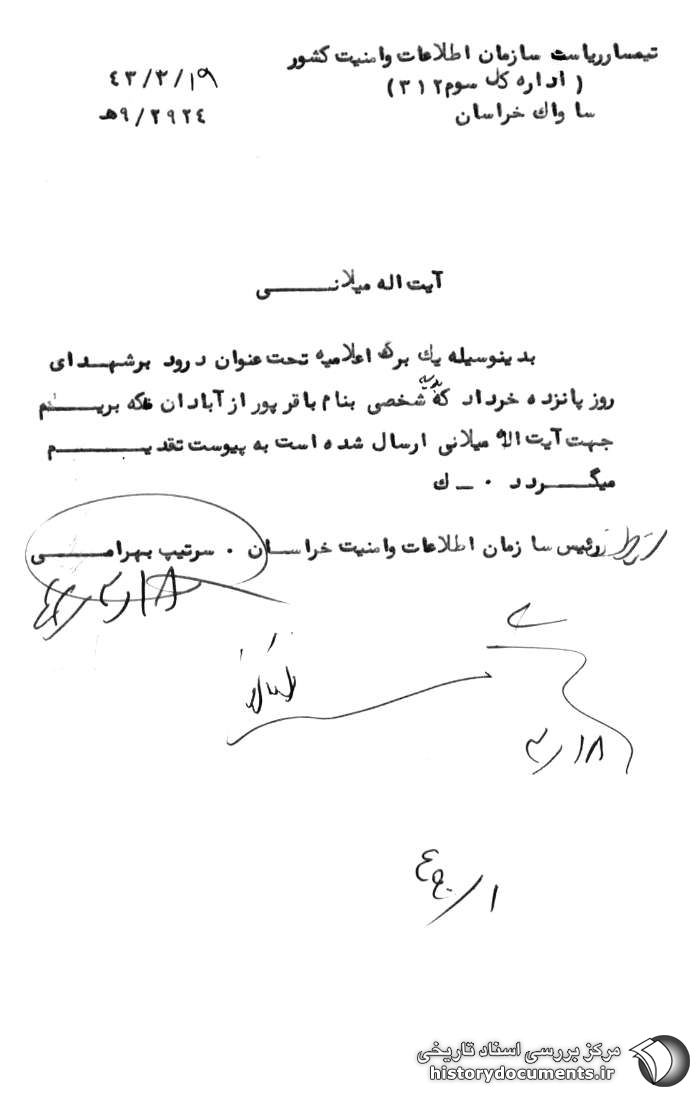 تیمسار ریاست سازمان اطلاعات وامنیت کشور
۴۳/۳/۱۹
( اداره کل سوم ۳۱۲ )
۹/۲۹۲۴هـ
ساواک خراسان
آیت اله میلانـــــــی
بدینوسیله یک برگ اعلامیه تحت عنوان درود برشهـدای
روز پانزده خرداد که شخصی بنام باقر پور از آبادان
جهت آیت اله میلانی ارسال شده است به پیوست تقدیــــــم
میگـــــردد ۰ ــ ک
رئیس سازمان اطلاعات وامنیت خراسـان ۰ سرتیپ بهرامـــــی
۱۸/۳
۱۸/۳
مرکز بررسی اسناد تاریخی
historydocuments.ir